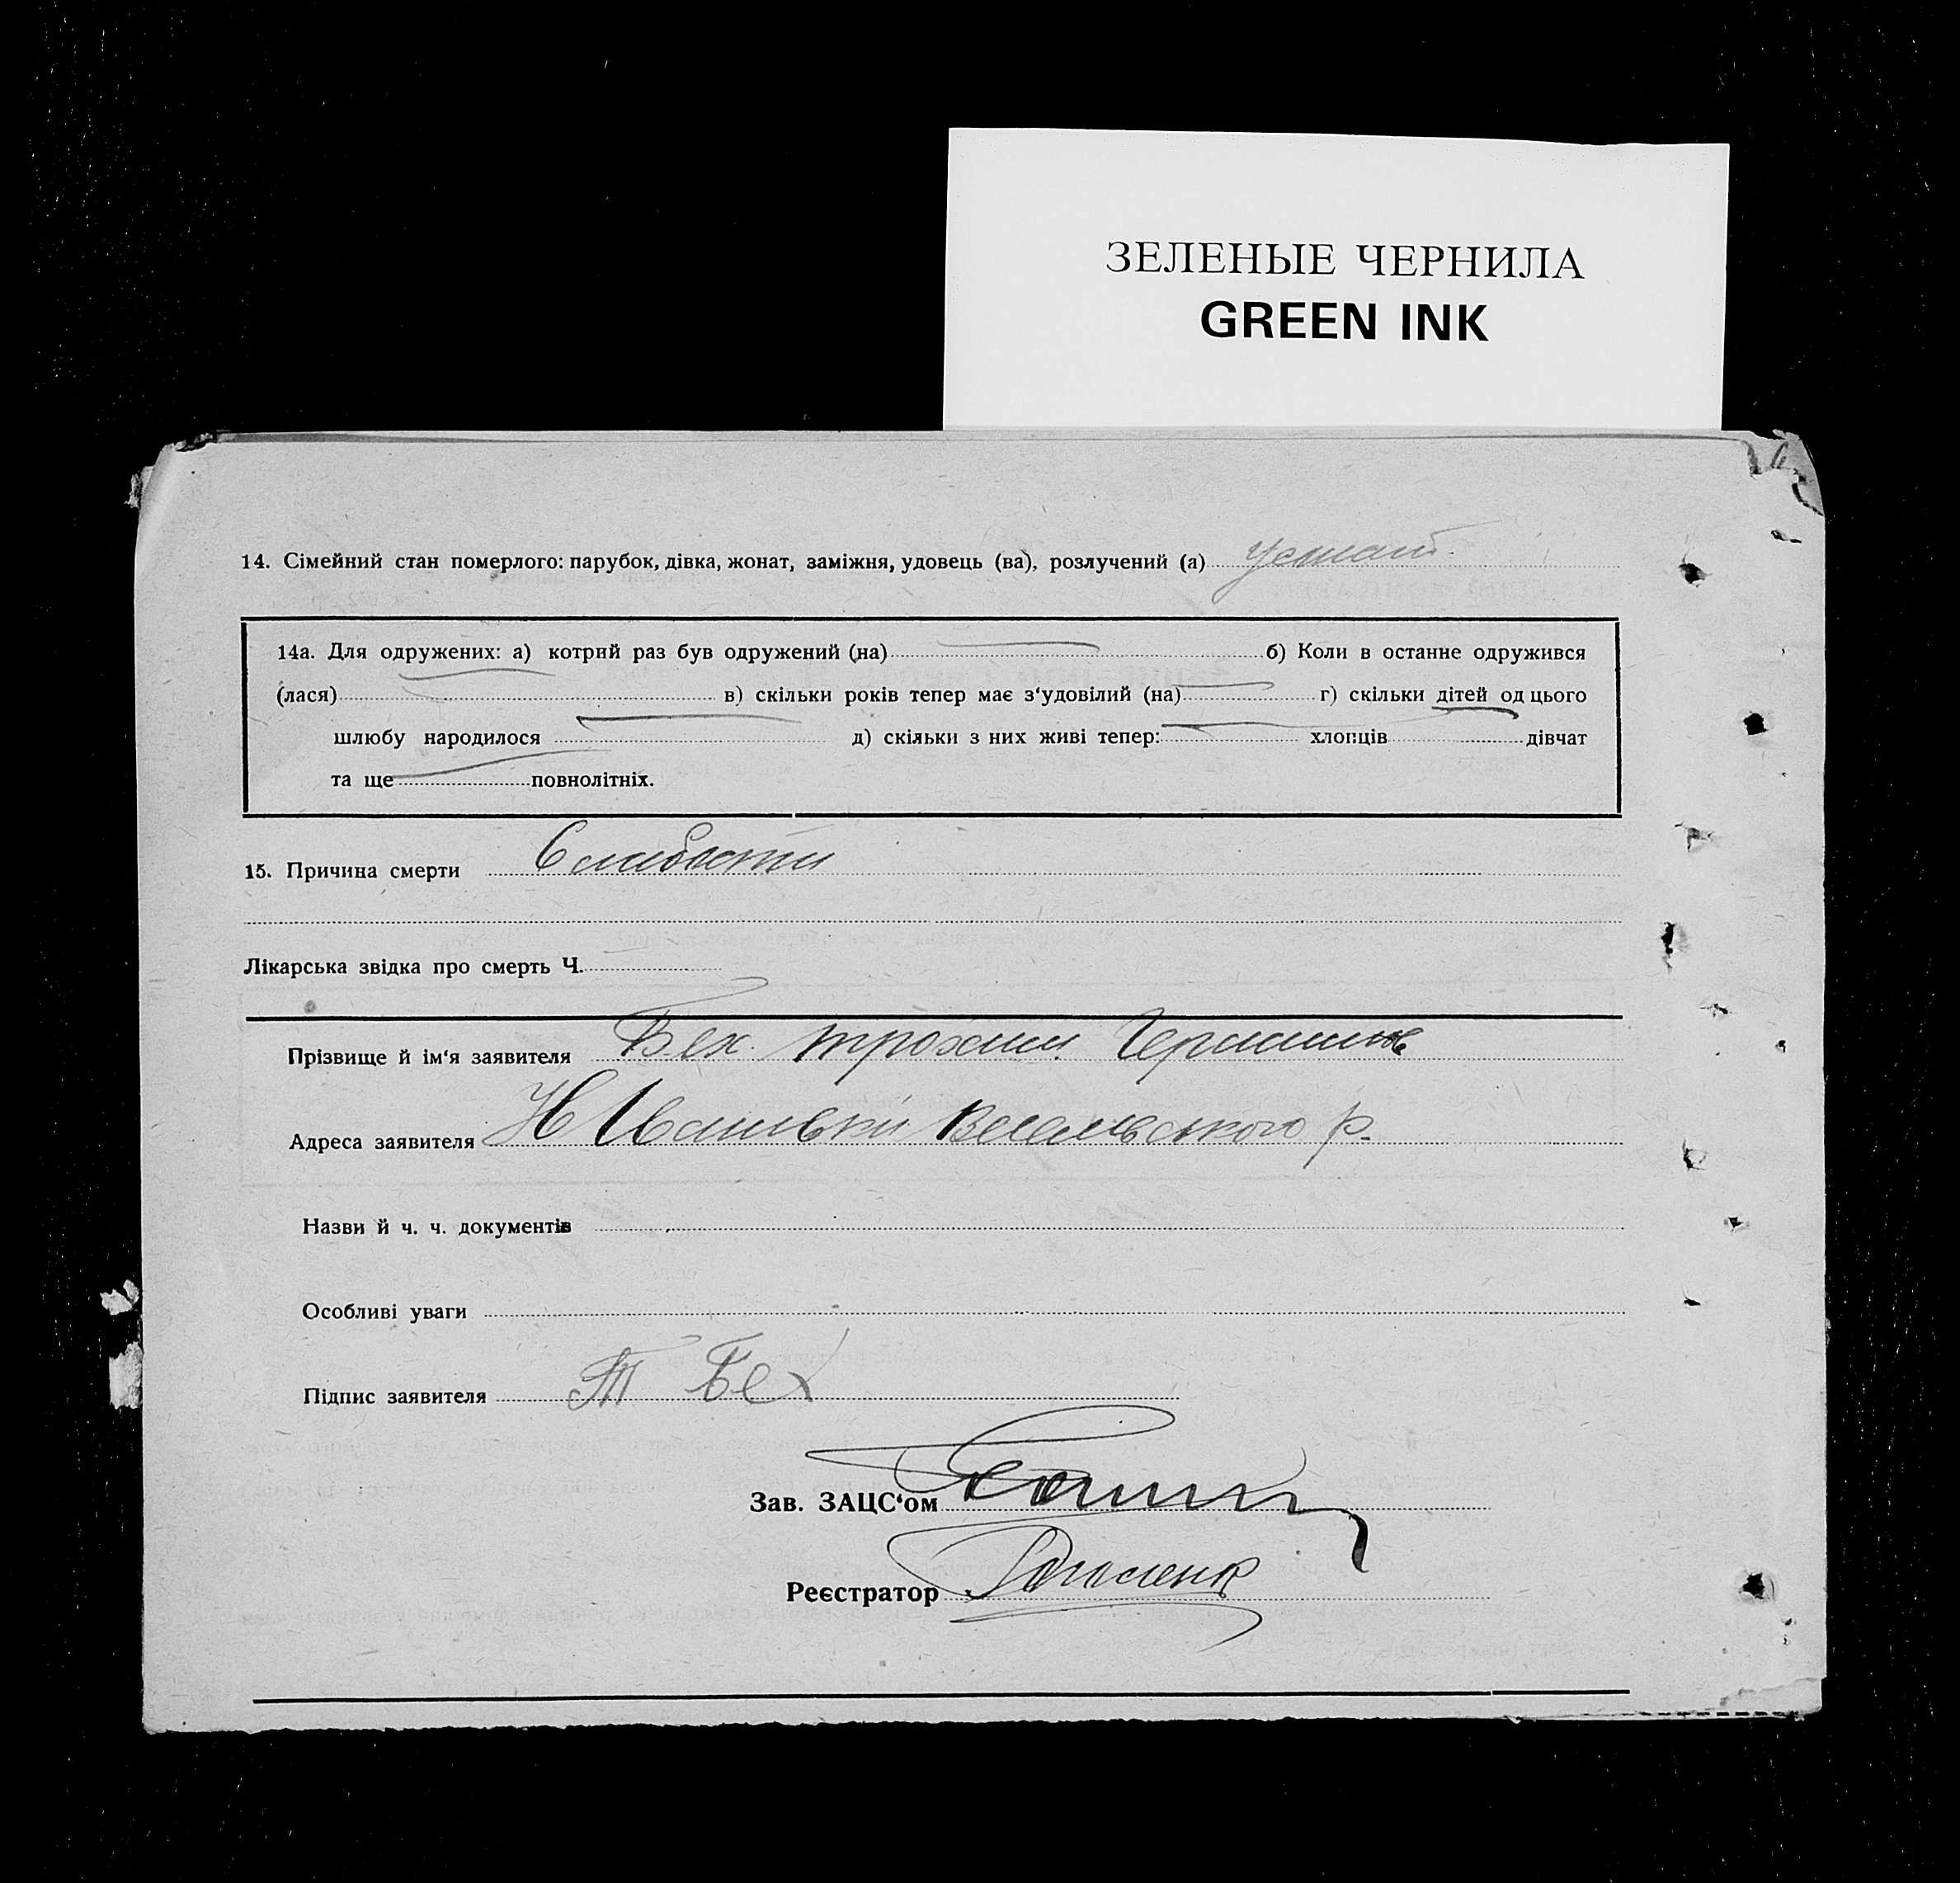 ЗЕЛЕНЫЕ ЧЕРНИЛА
GREEN INK
14. Сімейний стан померлого: парубок, дівка, жонат, заміжня, удовець (ва), розлучений (а)
14а. Для одружених: а) котрий раз був одружений (на) б) Коли в останне одружився
(лася) в) скільки років тепер має з‘удовілий (на) г) скільки дітей од цього
шлюбу народилося д) скільки з них живі тепер: хлопців дівчат
та ще повнолітніх.
15. Причина смерти Слабости
Лікарська звідка про смерть Ч.
Прізвище й ім‘я заявителя Бех трохим
Адреса заявителя Н Івановки Веселівського р.
Назви й ч. ч. документів
Особливі уваги
Підпис заявителя Т Бех
Зав. ЗАЦС‘ом
Реєстратор